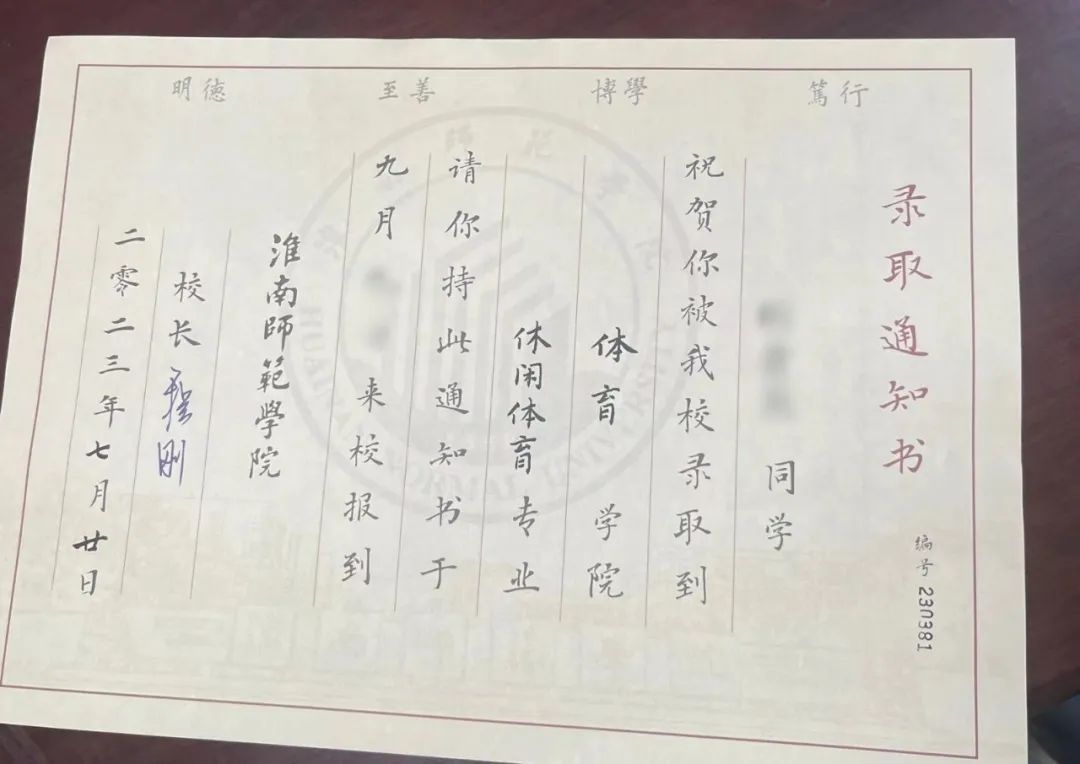 篤行 博學 至善 明德
录取通知书
编号 230381
同学
祝贺你被我校录取到
体育 学院
休闲体育专业
请你持此通知书于
九月 来校报到
淮南師範學院
校长
二零二三年七月廿日
HUAINAN NORMAL UNIVERSITY